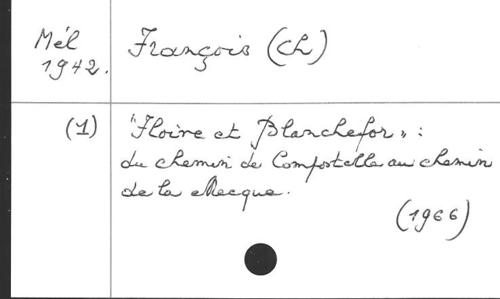 Mél
1942.
François (Ch)
(1)
"Floire et Blanchefor" :
du chemin de Compostelle au chemin
de la Mecque.
(1966)